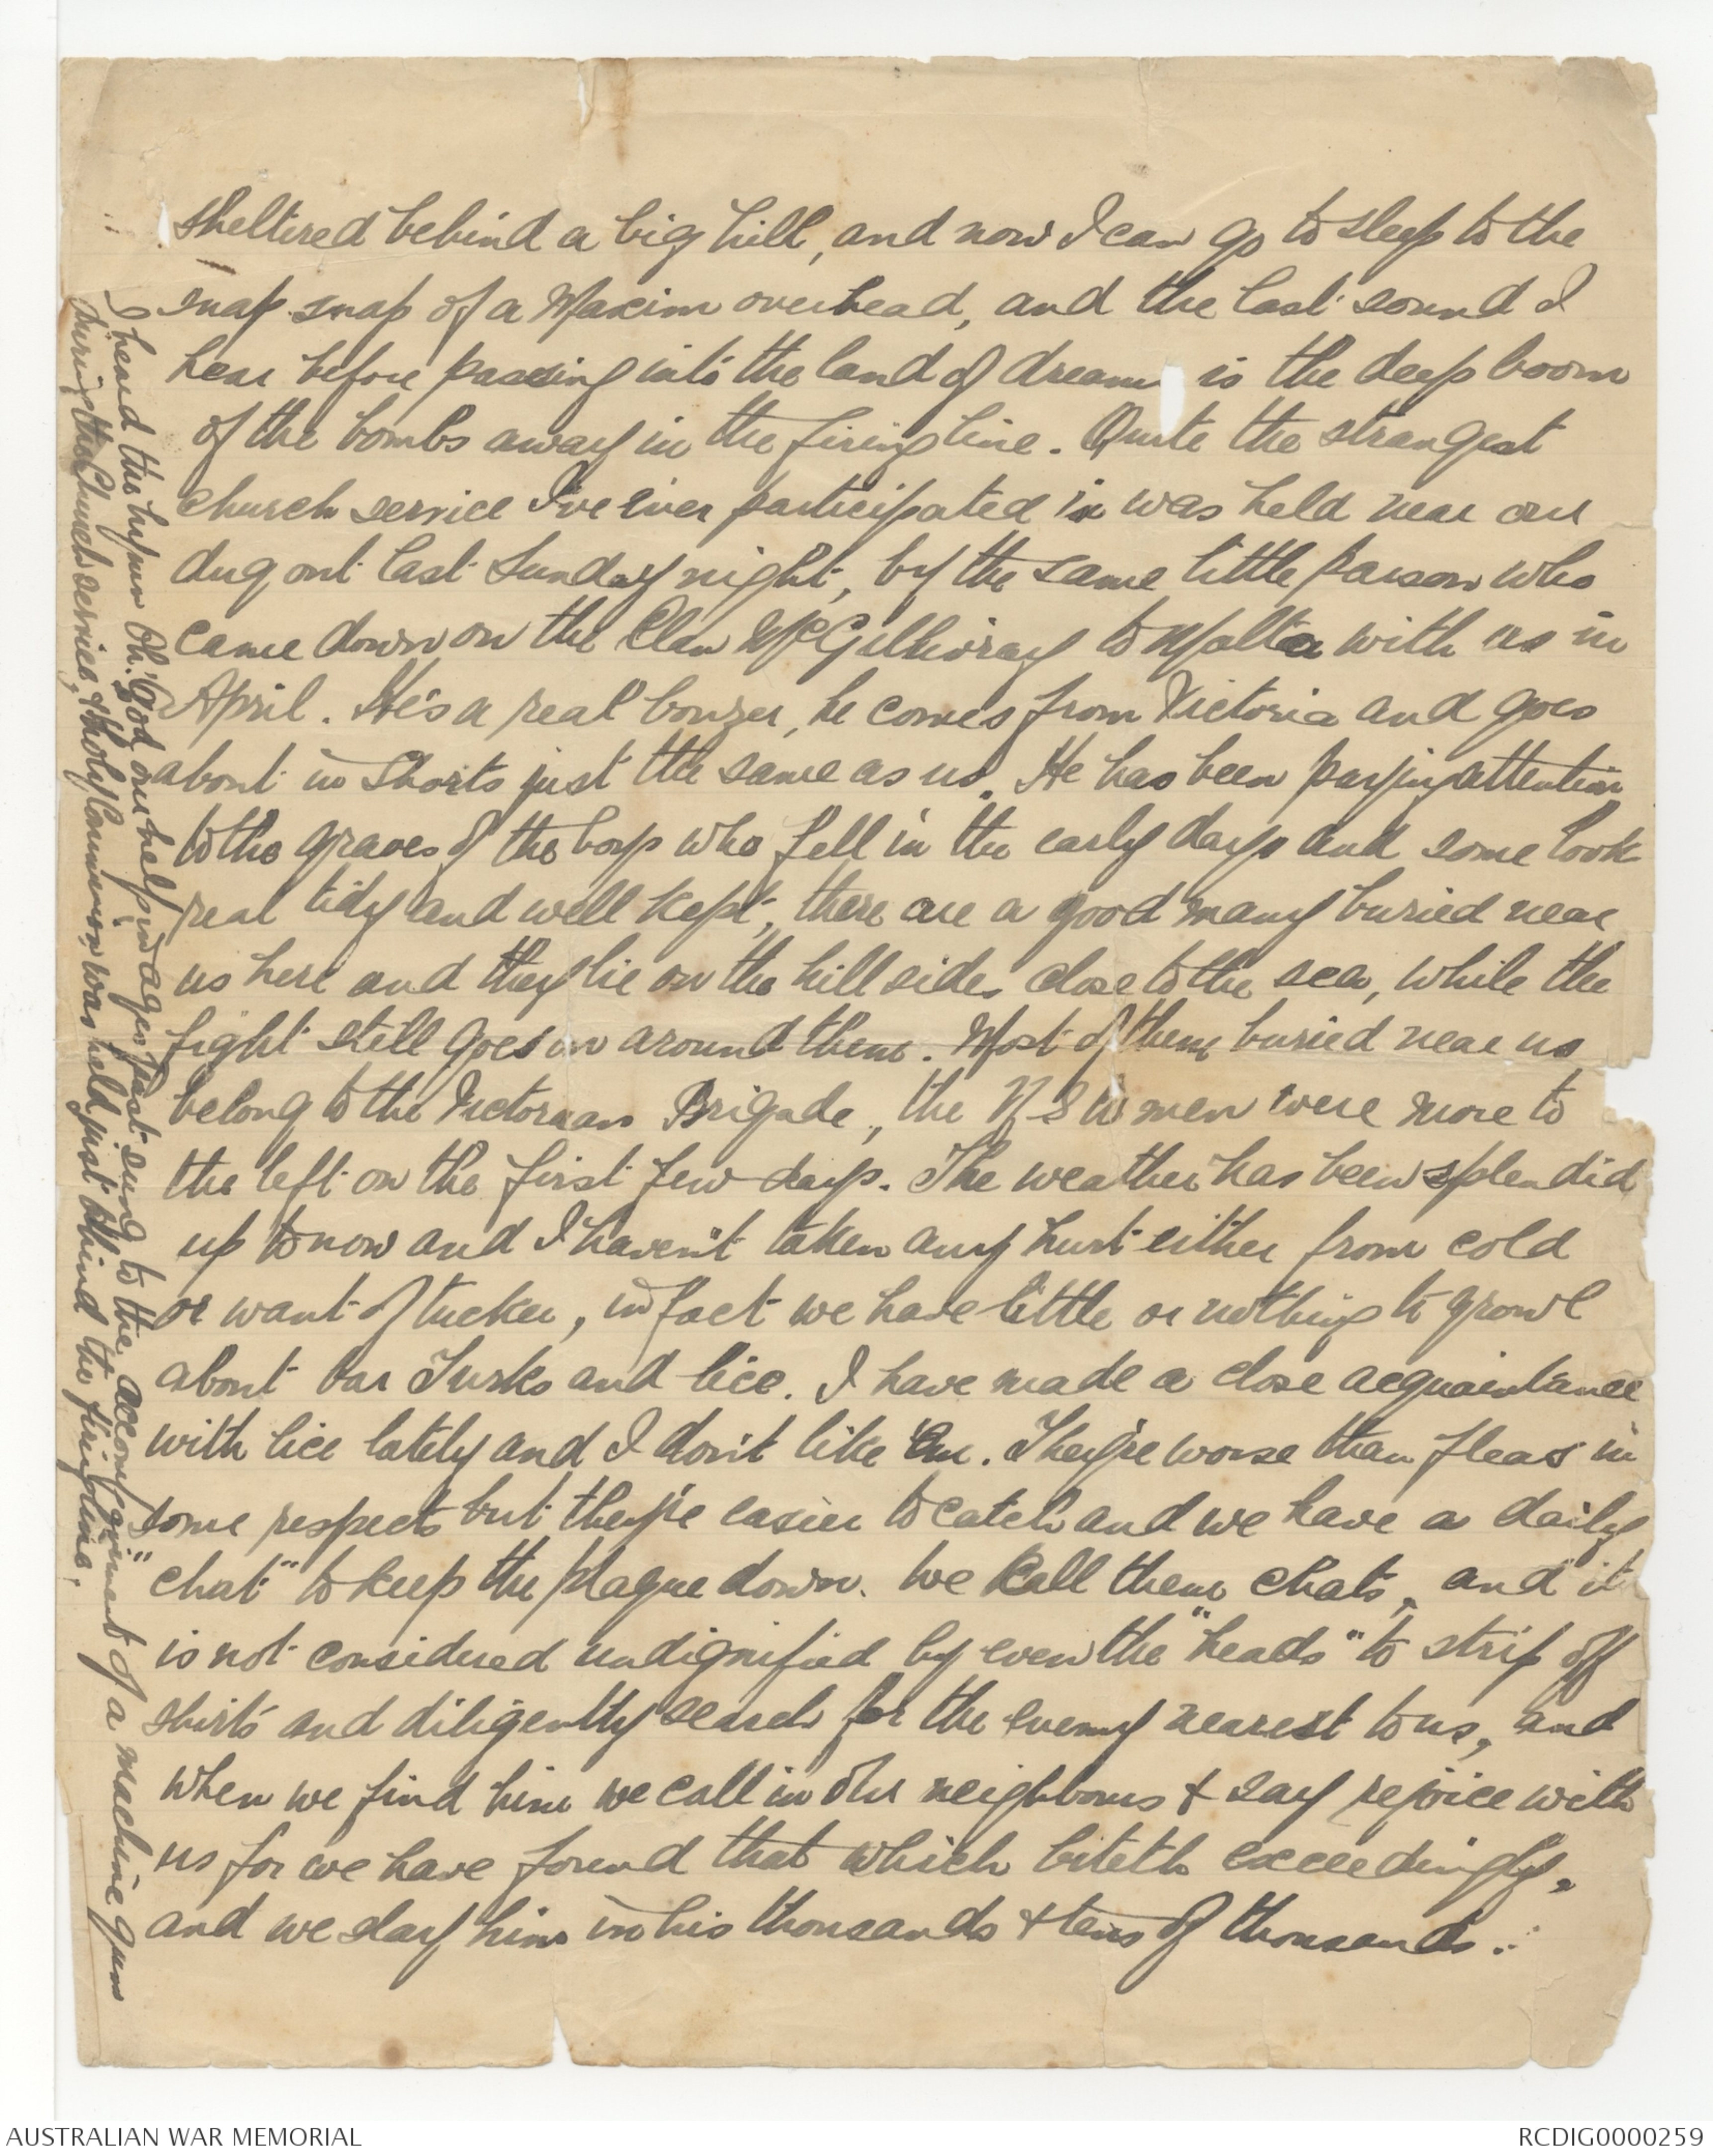 sheltered behind a big hill, and now I can go to sleep to the
snap snap of a Maxim overhead, and the last sound I
hear before passing into the land of dreams is the deep boom
of the bombs away in the firing line. Quite the strangest
church service I've ever participated in was held near our
dug out last Sunday night, by the same little parson who
came down on the Clan McGillivray to Malta with us in
April. He's a real bonzer, he comes from Victoria and goes
about in shorts just the same as us. He has been paying attention
to the graves of the boys who fell in the early days and some look
real tidy and well kept, there are a good many buried near
us here and they lie on the hill sides close to the sea, while the
fight still goes on around them. Most of them buried near us
belong to the Victorian Brigade, the N S W men were more to
the left on the first few days. The weather has been splendid
up to now and I haven't taken any hurt either from cold
or want of tucker, in fact we have little or nothing to growl
about bar Turks and lice. I have made a close acquaintance
with lice lately and I don't like 'em. They're worse than fleas in
some respects but they're easier to catch and we have a daily
"chat" to keep the plague down. We call them chats, and it
is not considered undignified by even the "heads" to strip off
shirts and diligently search for the enemy nearest to us, and
when we find him we call in our neighbours & say rejoice with
us for we have found that which biteth exceedingly,
and we slay him in his thousands & tens of thousands.
I heard the hymn Oh! God our help in ages past sung to the accompaniment of a machine gun
during the Church service, & holy Communion was held just behind the firing line.
AUSTRALIAN WAR MEMORIAL
RCDIG0000259